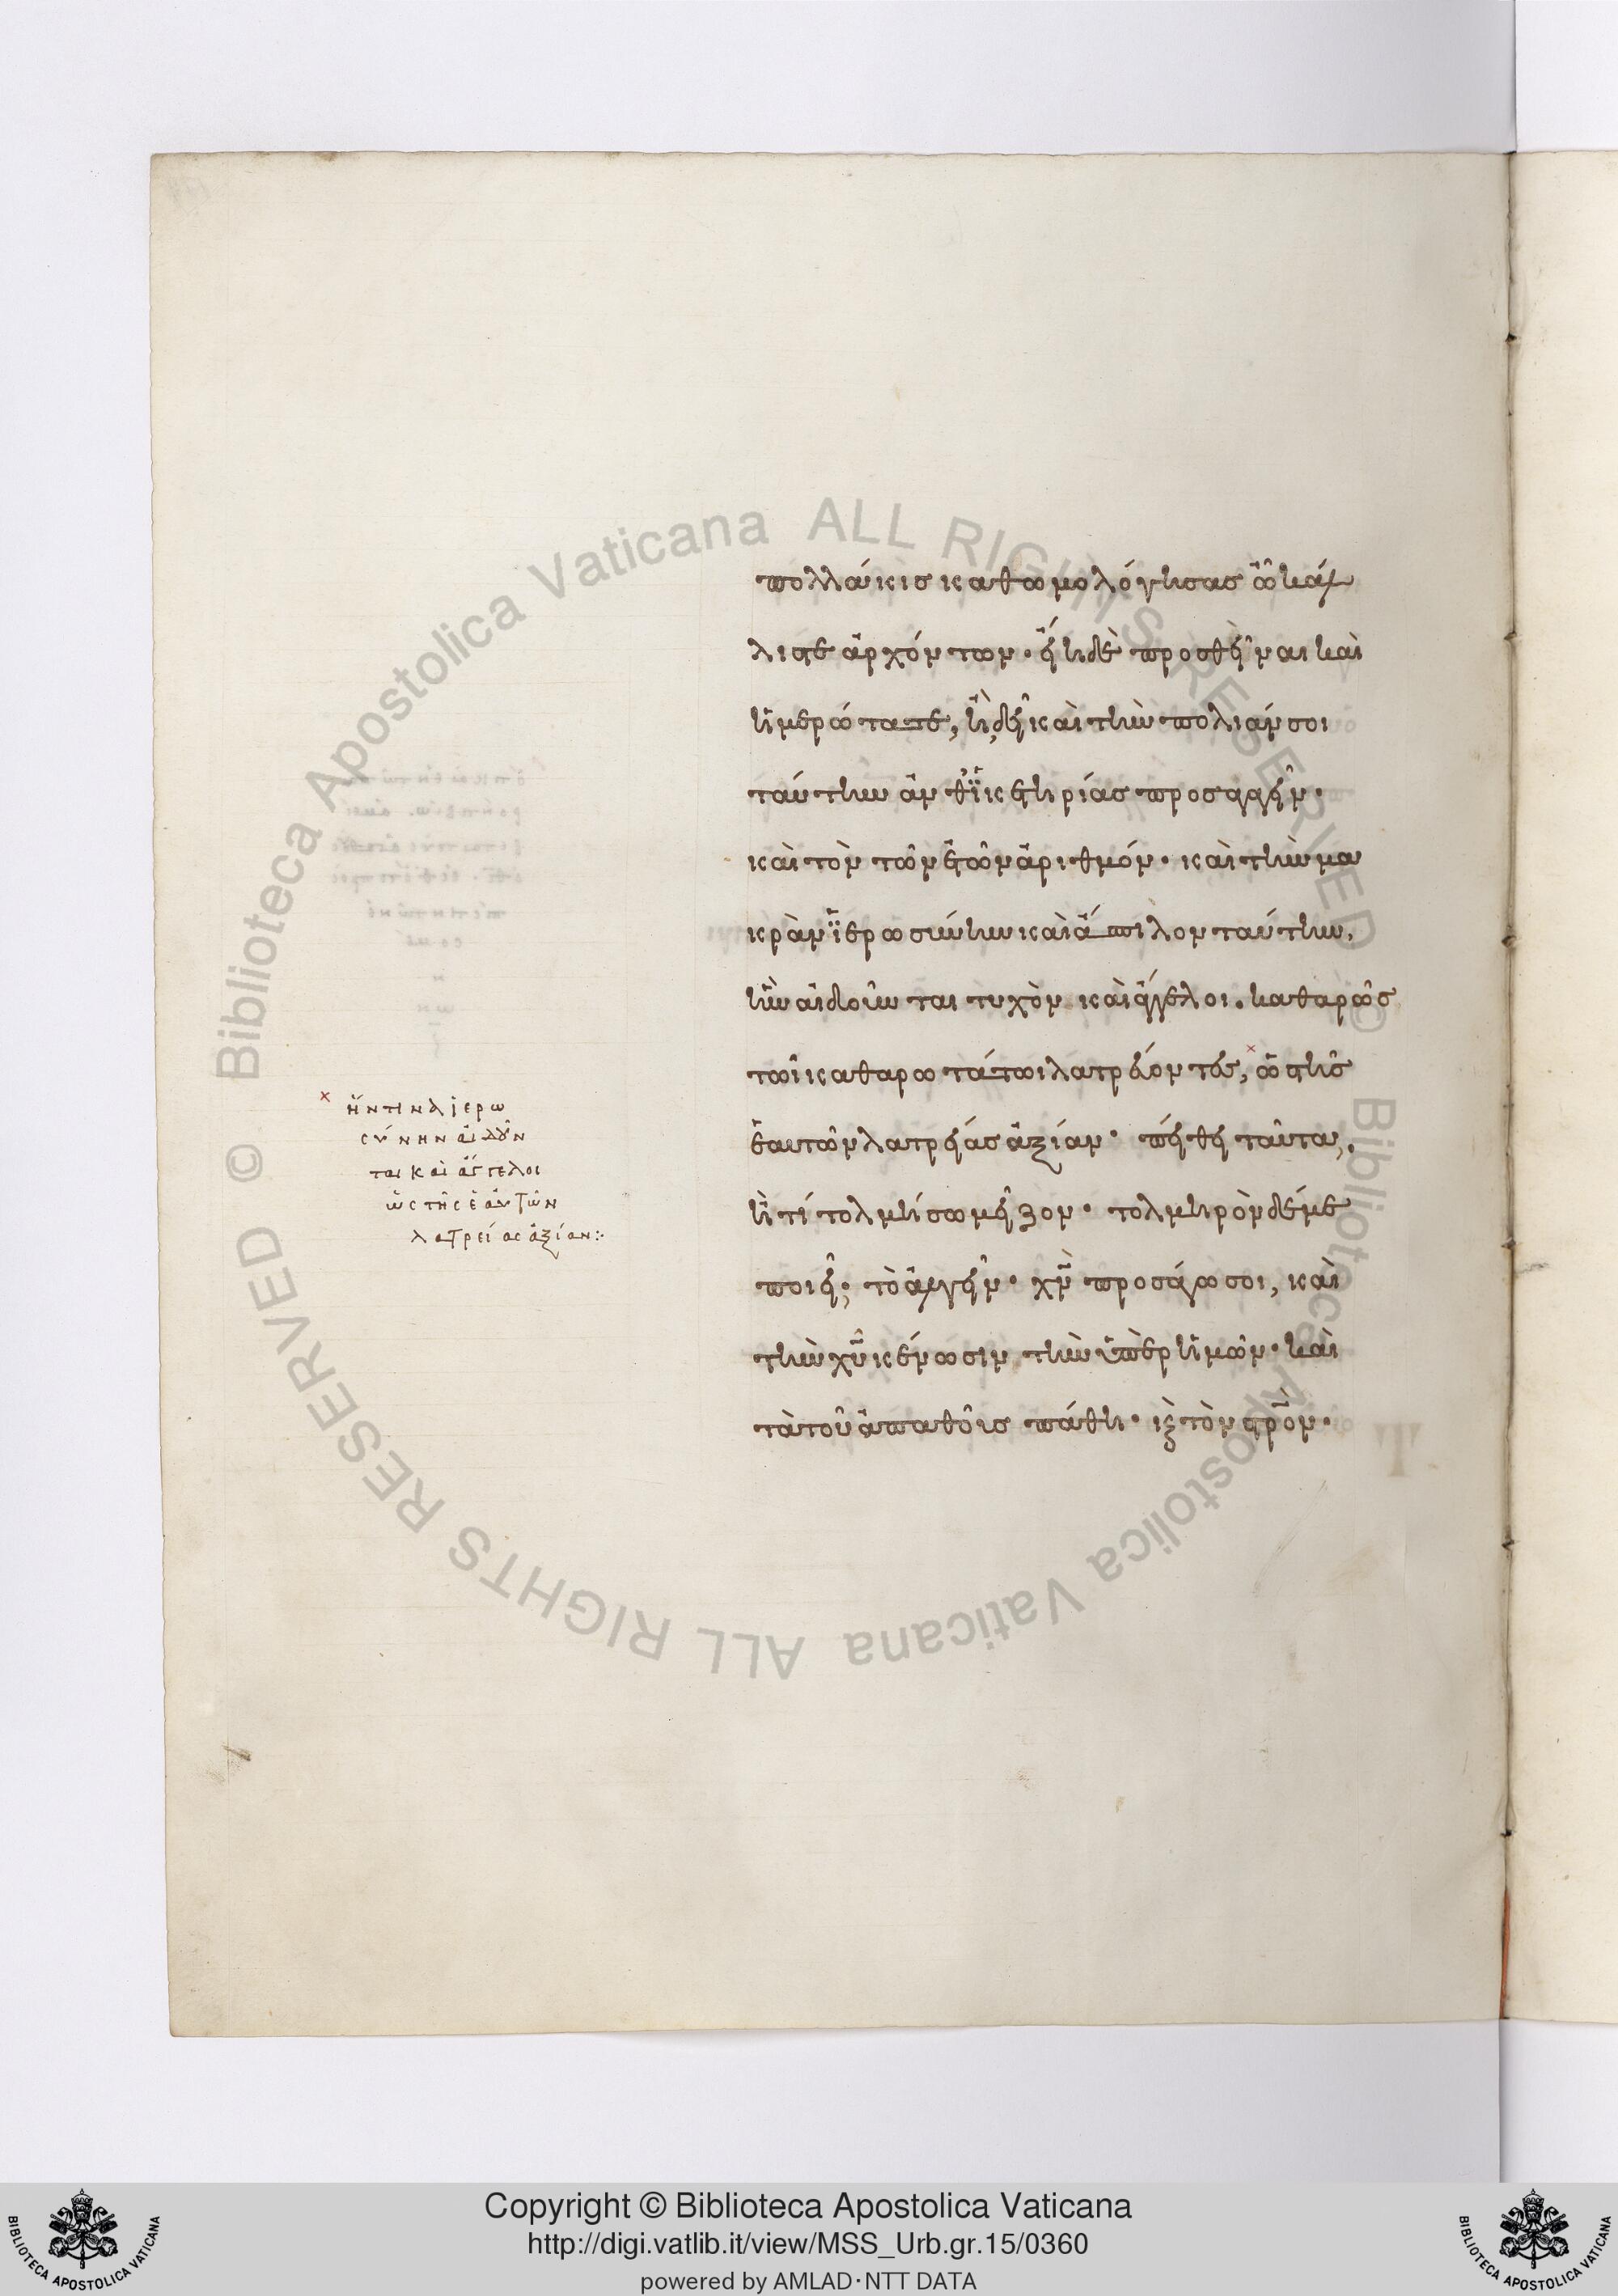 πολλάκις καθωμολόγησας ὦ κάλ
λιστε ἀρχόντων· εἰ δὲ προσθεῖναι καὶ
ἡμερώτατε, ἢ δεῖ καὶ τὴν πολιάν σοι
ταύτην ἀνθ ἱκετηρίας προσαγαγεῖν·
καὶ τὸν τῶν ἐτῶν ἀριθμόν· καὶ τὴν μα
κρὰν ἱερωσύνην καὶ ἄσπιλον ταύτην,
ἣν αἰδοῦνται τυχὸν καὶ ἄγγελοι. καθαρῶς
τῶι καθαρωτάτωι λατρεύοντες, ὡς τῆς
ἑαυτῶν λατρείας ἀξίαν· πείθει ταῦτα,
ἢ τί τολμήσω μεῖζον· τολμηρὸν δέ με
ποιεῖ; τὸ ἀλγεῖν· χν προσάγω σοι, καὶ
τὴν χυ κένωσιν τὴν ὑπὲρ ἡμῶν· καὶ
τὰ τοῦ ἀπαθοῦς πάθη· κ τὸν στρον·
ἥντινα ἱερω
σύνην αἰδοῦν
ται καὶ ἄγγελοι
ὡς τῆς ἑαυτῶν
λατρείας ἀξίαν:·
Copyright © Biblioteca Apostolica Vaticana
http://digi.vatlib.it/view/MSS_Urb.gr.15/0360
powered by AMLAD·NTT DATA
BIBLIOTECA APOSTOLICA VATICANA
BIBLIOTECA APOSTOLICA VATICANA
© Biblioteca Apostolica Vaticana ALL RIGHTS RESERVED
© Biblioteca Apostolica Vaticana ALL RIGHTS RESERVED